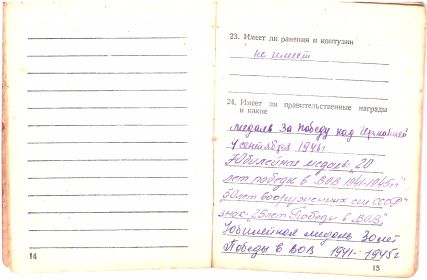 23. Имеет ли ранения и контузии
не имеет
24. Имеет ли правительственные награды
и какие
медаль За победу над Германией
4 сентября 1946г
Юбилейная медаль „20
лет победы в ВОВ 1941-1945гг"
„50 лет вооруженных сил СССР"
знак „25 лет Победы в ВОВ"
Юбилейная медаль 30 лет
Победы в ВОВ 1941-1945г
14
15